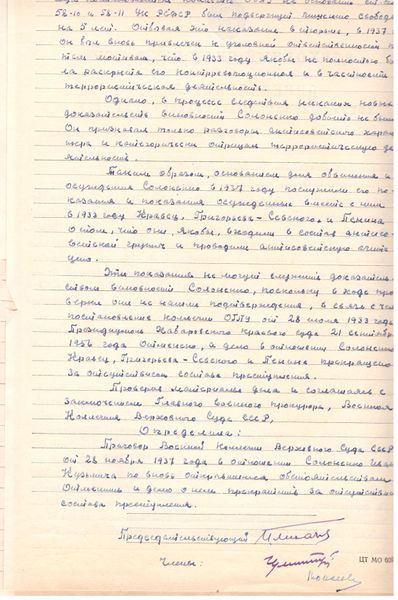 58-10 и 58-11 УК РСФСР был подвергнут лишению свободы
на 5 лет. Отбывая это наказание в 1937 г
он был вновь привлечен к уголовной ответственности по
тем мотивам, что в 1933 году якобы не полностью была
раскрыта его контрреволюционная и в частности
террористическая деятельность.
Однако, в процессе следствия никаких новых
доказательств виновности Солоненко добыто не было
Он признавал только разговоры антисоветского харак-
тера и категорически отрицал террористическую де-
ятельность.
Таким образом, основанием для обвинения и
осуждения Солоненко в 1937 году послужили его по-
казания и показания осужденных вместе с ним
в 1933 году Кравец, Григорьева-Севского и Пенина
о том, что они, якобы, входили в состав антисо-
ветской группы и проводили антисоветскую агита-
цию.
Эти показания не могут служить доказатель-
ством виновности Солоненко, поскольку в ходе про-
верки они не нашли подтверждения, в связи с чем
постановление коллегии ОГПУ от 28 июня 1933 года
Президиумом Хабаровского краевого суда 21 сентября
1956 года отменено, а дело в отношении Солоненко
Кравец, Григорьева-Севского и Пенина прекращено
за отсутствием состава преступления.
Проверив материалы дела и соглашаясь с
заключением Главного военного прокурора, Военная
Коллегия Верховного Суда СССР,
Определила:
Приговор Военной Коллегии Верховного Суда СССР
от 28 ноября 1937 года в отношении Солоненко Ивана
Кузьмича по вновь открывшимся обстоятельствам
отменить и дело о нем прекратить за отсутствием
состава преступления.
Председательствующий
Члены:
ЦТ МО 608